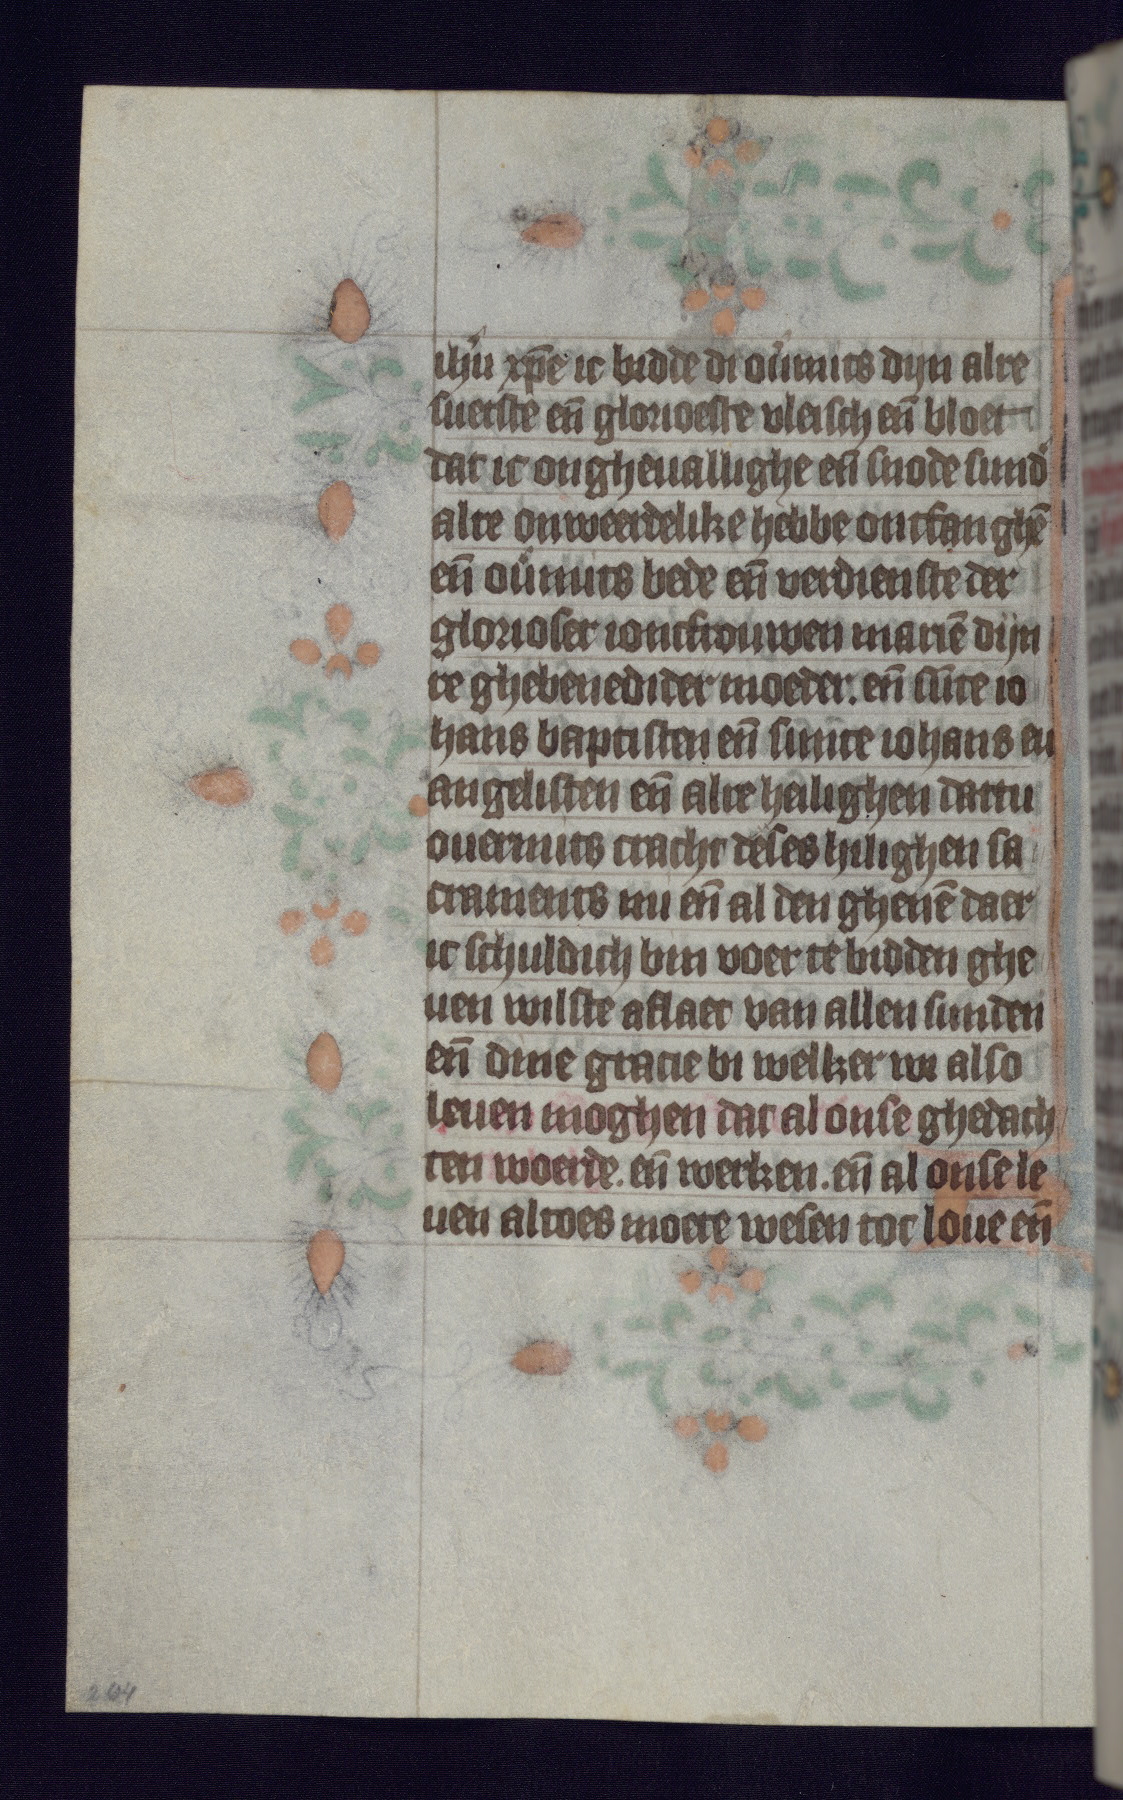 ihu̅ xp̅e ic bidde di ou̅mits dijn alre
suetste en̅ glorioeste vleisch en̅ bloet
dat ic ongheuallighe en̅ snode sund'
alre onweerdelike hebbe ontfanghe̅
en̅ ou̅mits bede en̅ verdienste der
glorioser ioncfrouwen marie̅ dijn
re ghebenedider moeder. en̅ su̅te io
hans baptisten en̅ sunte iohans eu
angelisten en̅ alre heilighen dattu
ouermits cracht deses hilighen sa
craments mi en̅ al den ghene̅ daer
ic schuldich bin voer te bidden ghe
uen wilste aflaet van allen sunden
en̅ dine gracie bi welker wi also
leuen moghen dat al onse ghedach
ten woerde. en̅ werken. en̅ al onse le
uen altoes moete wesen tot loue en̅
264